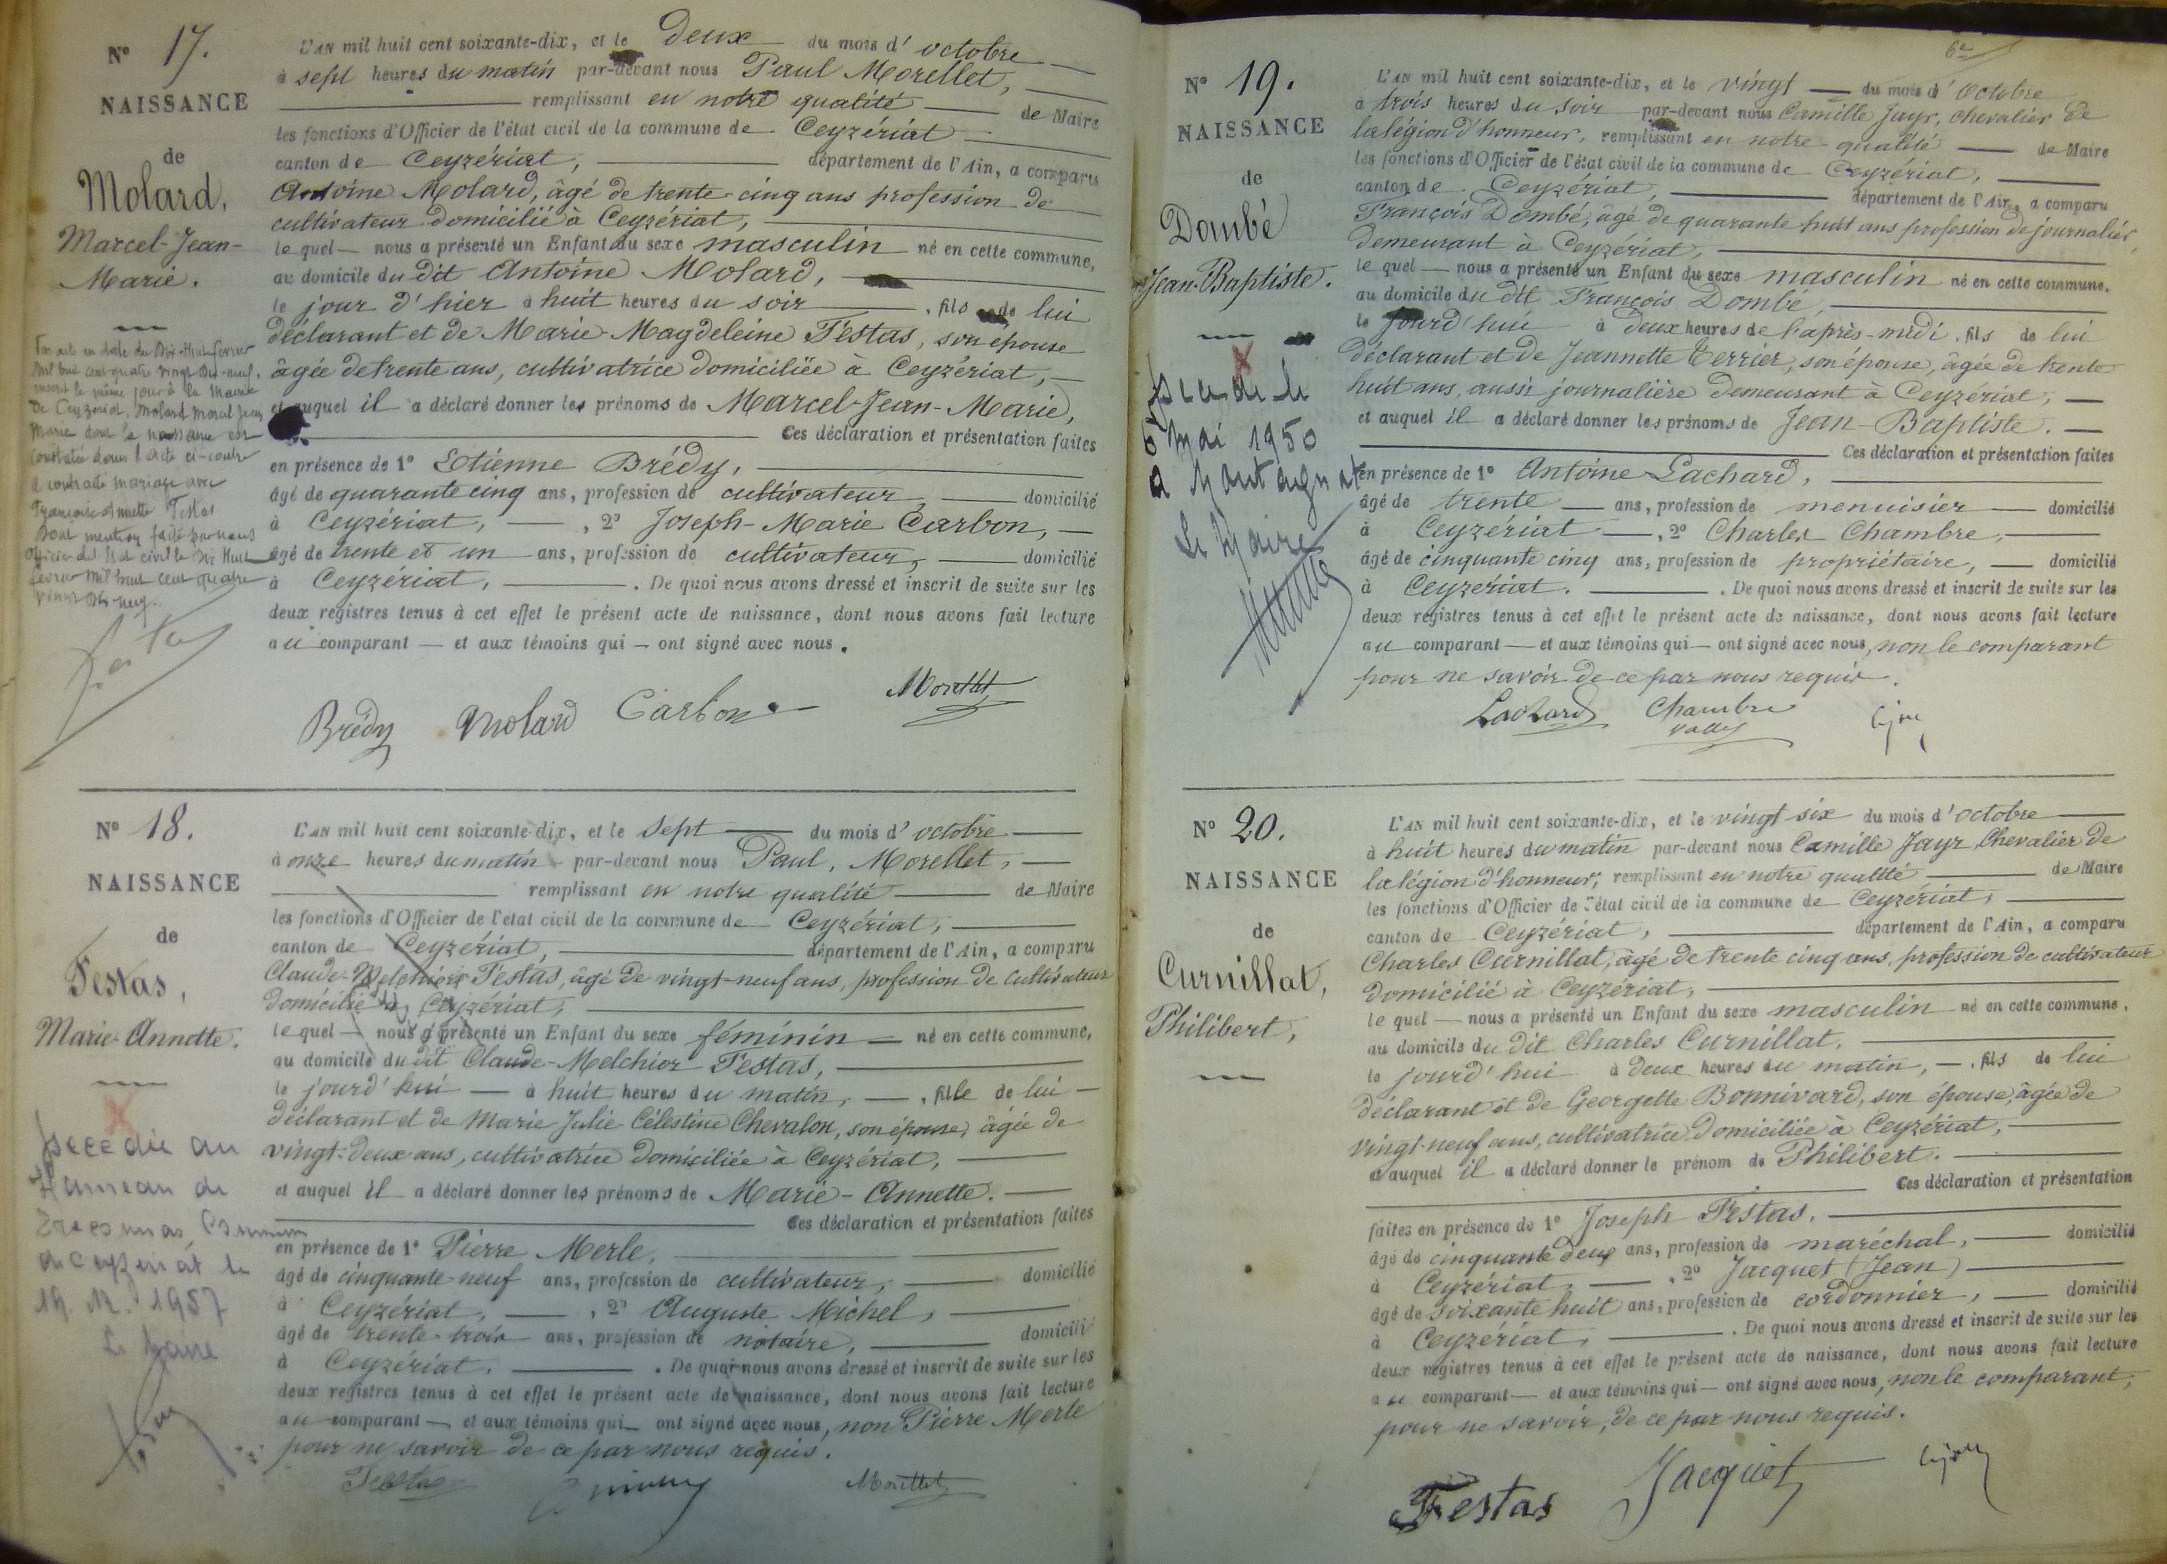 N° 17.
NAISSANCE
de
Molard,
Marcel-Jean-
Marie.
L'AN mil huit cent soixante-dix, et le deux du mois d'octobre
à sept heures du matin par-devant nous Paul Morellet,
remplissant en notre qualité de Maire
les fonctions d'Officier de l'état civil de la commune de Ceyzériat
canton de Ceyzériat, département de l'Ain, a comparu
Antoine Molard, âgé de trente-cinq ans profession de
cultivateur domicilié à Ceyzériat,
le quel nous a présenté un Enfant du sexe masculin né en cette commune,
au domicile du dit Antoine Molard,
le jour d'hier à huit heures du soir, fils de lui
déclarant et de Marie-Magdeleine Festas, son épouse
âgée de trente ans, cultivatrice domiciliée à Ceyzériat,
et auquel il a déclaré donner les prénoms de Marcel-Jean-Marie,
Ces déclaration et présentation faites
en présence de 1° Etienne Brédy,
âgé de quarante cinq ans, profession de cultivateur, domicilié
à Ceyzériat, 2° Joseph-Marie Carbon,
âgé de trente et un ans, profession de cultivateur, domicilié
à Ceyzériat, . De quoi nous avons dressé et inscrit de suite sur les
deux registres tenus à cet effet le présent acte de naissance, dont nous avons fait lecture
au comparant et aux témoins qui ont signé avec nous.
Brédy Molard Carbon Morellet
Par acte en date du Dix-Huit février
Mil huit cent quatre vingt Dix-neuf,
inscrit le même jour à la Mairie
De Ceyzériat, Molard Marcel Jean
Marie dont la naissance est
constatée dans l'acte ci-contre
a contracté mariage avec
Françoise Annette Festas
Dont mention faite par nous
Officier de l'Etat civil le Dix Huit
février Mil huit cent quatre
vingt Dix-neuf.
N° 18.
NAISSANCE
de
Festas,
Marie-Annette.
L'AN mil huit cent soixante-dix, et le sept du mois d'octobre
à onze heures du matin par-devant nous Paul, Morellet,
remplissant en notre qualité de Maire
les fonctions d'Officier de l'état civil de la commune de Ceyzériat,
canton de Ceyzériat, département de l'Ain, a comparu
Claude-Melchior Festas, âgé de vingt-neuf ans, profession de cultivateur
domicilié à Ceyzériat,
le quel nous a présenté un Enfant du sexe féminin né en cette commune,
au domicile du dit Claude-Melchior Festas,
le jourd'hui à huit heures du matin, , fille de lui
déclarant et de Marie Julie Célestine Chevalon, son épouse, âgée de
vingt-deux ans, cultivatrice domiciliée à Ceyzériat,
et auquel il a déclaré donner les prénoms de Marie-Annette.
Ces déclaration et présentation faites
en présence de 1° Pierre Merle,
âgé de cinquante-neuf ans, profession de cultivateur, domicilié
à Ceyzériat, , 2° Auguste Michel,
âgé de trente-trois ans, profession de notaire, domicilié
à Ceyzériat. . De quoi nous avons dressé et inscrit de suite sur les
deux registres tenus à cet effet le présent acte de naissance, dont nous avons fait lecture
au comparant et aux témoins qui ont signé avec nous, non Pierre Merle
pour ne savoir de ce par nous requis.
Festas Morellet
Décédée au
Hameau de
Commune
de Ceyzériat le
19. 12. 1957
Le Maire
N° 19.
NAISSANCE
de
Dombé
Jean-Baptiste.
L'AN mil huit cent soixante-dix, et le vingt du mois d'octobre
à trois heures du soir par-devant nous Camille Jayr, chevalier de
la légion d'honneur, remplissant en notre qualité de Maire
les fonctions d'Officier de l'état civil de la commune de Ceyzériat,
canton de Ceyzériat, département de l'Ain, a comparu
François Dombé, âgé de quarante-huit ans profession de journalier,
demeurant à Ceyzériat,
le quel nous a présenté un Enfant du sexe masculin né en cette commune.
au domicile du dit François Dombé,
le jourd'hui à deux heures de l'après-midi, fils de lui
déclarant et de Jeannette Terrier, son épouse, âgée de trente
huit ans, aussi journalière demeurant à Ceyzériat,
et auquel il a déclaré donner les prénoms de Jean-Baptiste.
Ces déclaration et présentation faites
en présence de 1° Antoine Lachard,
âgé de trente ans, profession de menuisier domicilié
à Ceyzériat , 2° Charles Chambre,
âgé de cinquante cinq ans, profession de propriétaire, domicilié
à Ceyzériat. . De quoi nous avons dressé et inscrit de suite sur les
deux registres tenus à cet effet le présent acte de naissance, dont nous avons fait lecture
au comparant et aux témoins qui ont signé avec nous, non le comparant
pour ne savoir de ce par nous requis.
Lachard Chambre Jayr
Décédé le
6 Mai 1950
à Montagnat
Le Maire
N° 20.
NAISSANCE
de
Curnillat,
Philibert,
L'AN mil huit cent soixante-dix, et le vingt six du mois d'octobre
à huit heures du matin par-devant nous Camille Jayr Chevalier de
la légion d'honneur, remplissant en notre qualité de Maire
les fonctions d'Officier de l'état civil de la commune de Ceyzériat,
canton de Ceyzériat, département de l'Ain, a comparu
Charles Curnillat, âgé de trente cinq ans, profession de cultivateur
domicilié à Ceyzériat,
le quel nous a présenté un Enfant du sexe masculin né en cette commune.
au domicile du dit Charles Curnillat.
le jourd'hui à deux heures du matin, , fils de lui
déclarant et de Georgette Bonnivard, son épouse, âgée de
vingt-neuf ans, cultivatrice domiciliée à Ceyzériat,
et auquel il a déclaré donner le prénom de Philibert.
Ces déclaration et présentation
faites en présence de 1° Joseph Festas.
âgé de cinquante deux ans, profession de maréchal, domicilié
à Ceyzériat, , 2° Jacquet (Jean)
âgé de soixante huit ans, profession de cordonnier, domicilié
à Ceyzériat, . De quoi nous avons dressé et inscrit de suite sur les
deux registres tenus à cet effet le présent acte de naissance, dont nous avons fait lecture
au comparant et aux témoins qui ont signé avec nous, non le comparant,
pour ne savoir, de ce par nous requis.
Festas Jacquet Jayr